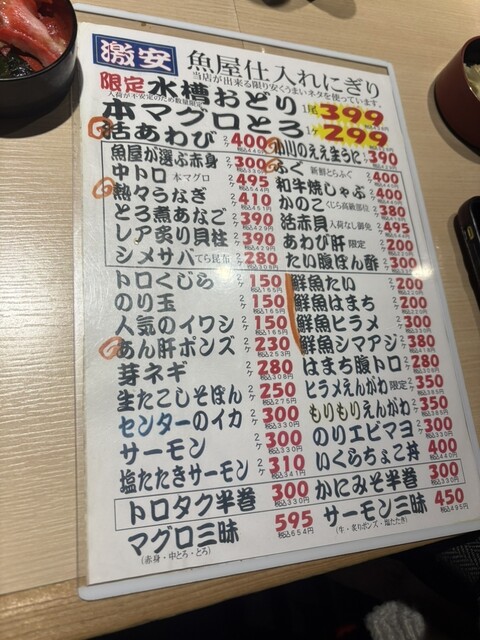 激安 魚屋仕入れにぎり
当店が出来る限り安くうまいネタを使っています。
限定 水槽おどり 1尾 399
入荷が不安定のため数量限定
本マグロとろ 1ケ 299
活あわび 2ケ 400 税込440円
魚屋が選ぶ赤身 2ケ 300 税込330円
中トロ 本マグロ 2ケ 495
熱々うなぎ 2ケ 410 税込451円
とろ煮あなご 2ケ 390 税込429円
レア炙り貝柱 2ケ 390 税込429円
シメサバ てら昆布 2ケ 280 税込309円
小川のええまうに 390
ふぐ 新鮮とらふぐ 2ケ 400
和牛焼しゃぶ 2ケ 400
かのこ くじら高級部位 2ケ 380
活赤貝 入荷なし御免 2ケ 495
あわび肝 限定 2ケ 200
たい腹ぽん酢 2ケ 300
トロくじら 150 税込165円
のり玉 150 税込165円
人気のイワシ 150 税込165円
あん肝ポンズ 2ケ 230 税込253円
芽ネギ 2ケ 280 税込308円
生たこしそぽん 2ケ 250 税込275円
センターのイカ 2ケ 300 税込330円
サーモン 2ケ 300 税込330円
塩たたきサーモン 2ケ 310 税込341円
鮮魚たい 2ケ 200
鮮魚はまち 2ケ 200
鮮魚ヒラメ 2ケ 300
鮮魚シマアジ 2ケ 380
はまち腹トロ 2ケ 280
ヒラメえんがわ 限定 2ケ 350
もりもりえんがわ 2ケ 350
のりエビマヨ 2ケ 300
いくらちょこ丼 400
トロタク半巻 300 税込330円
かにみそ半巻 300 税込330円
マグロ三昧 595 税込654円
(赤身・中とろ・とろ)
サーモン三昧 450 税込495円
(生・炙りポンズ・塩たたき)